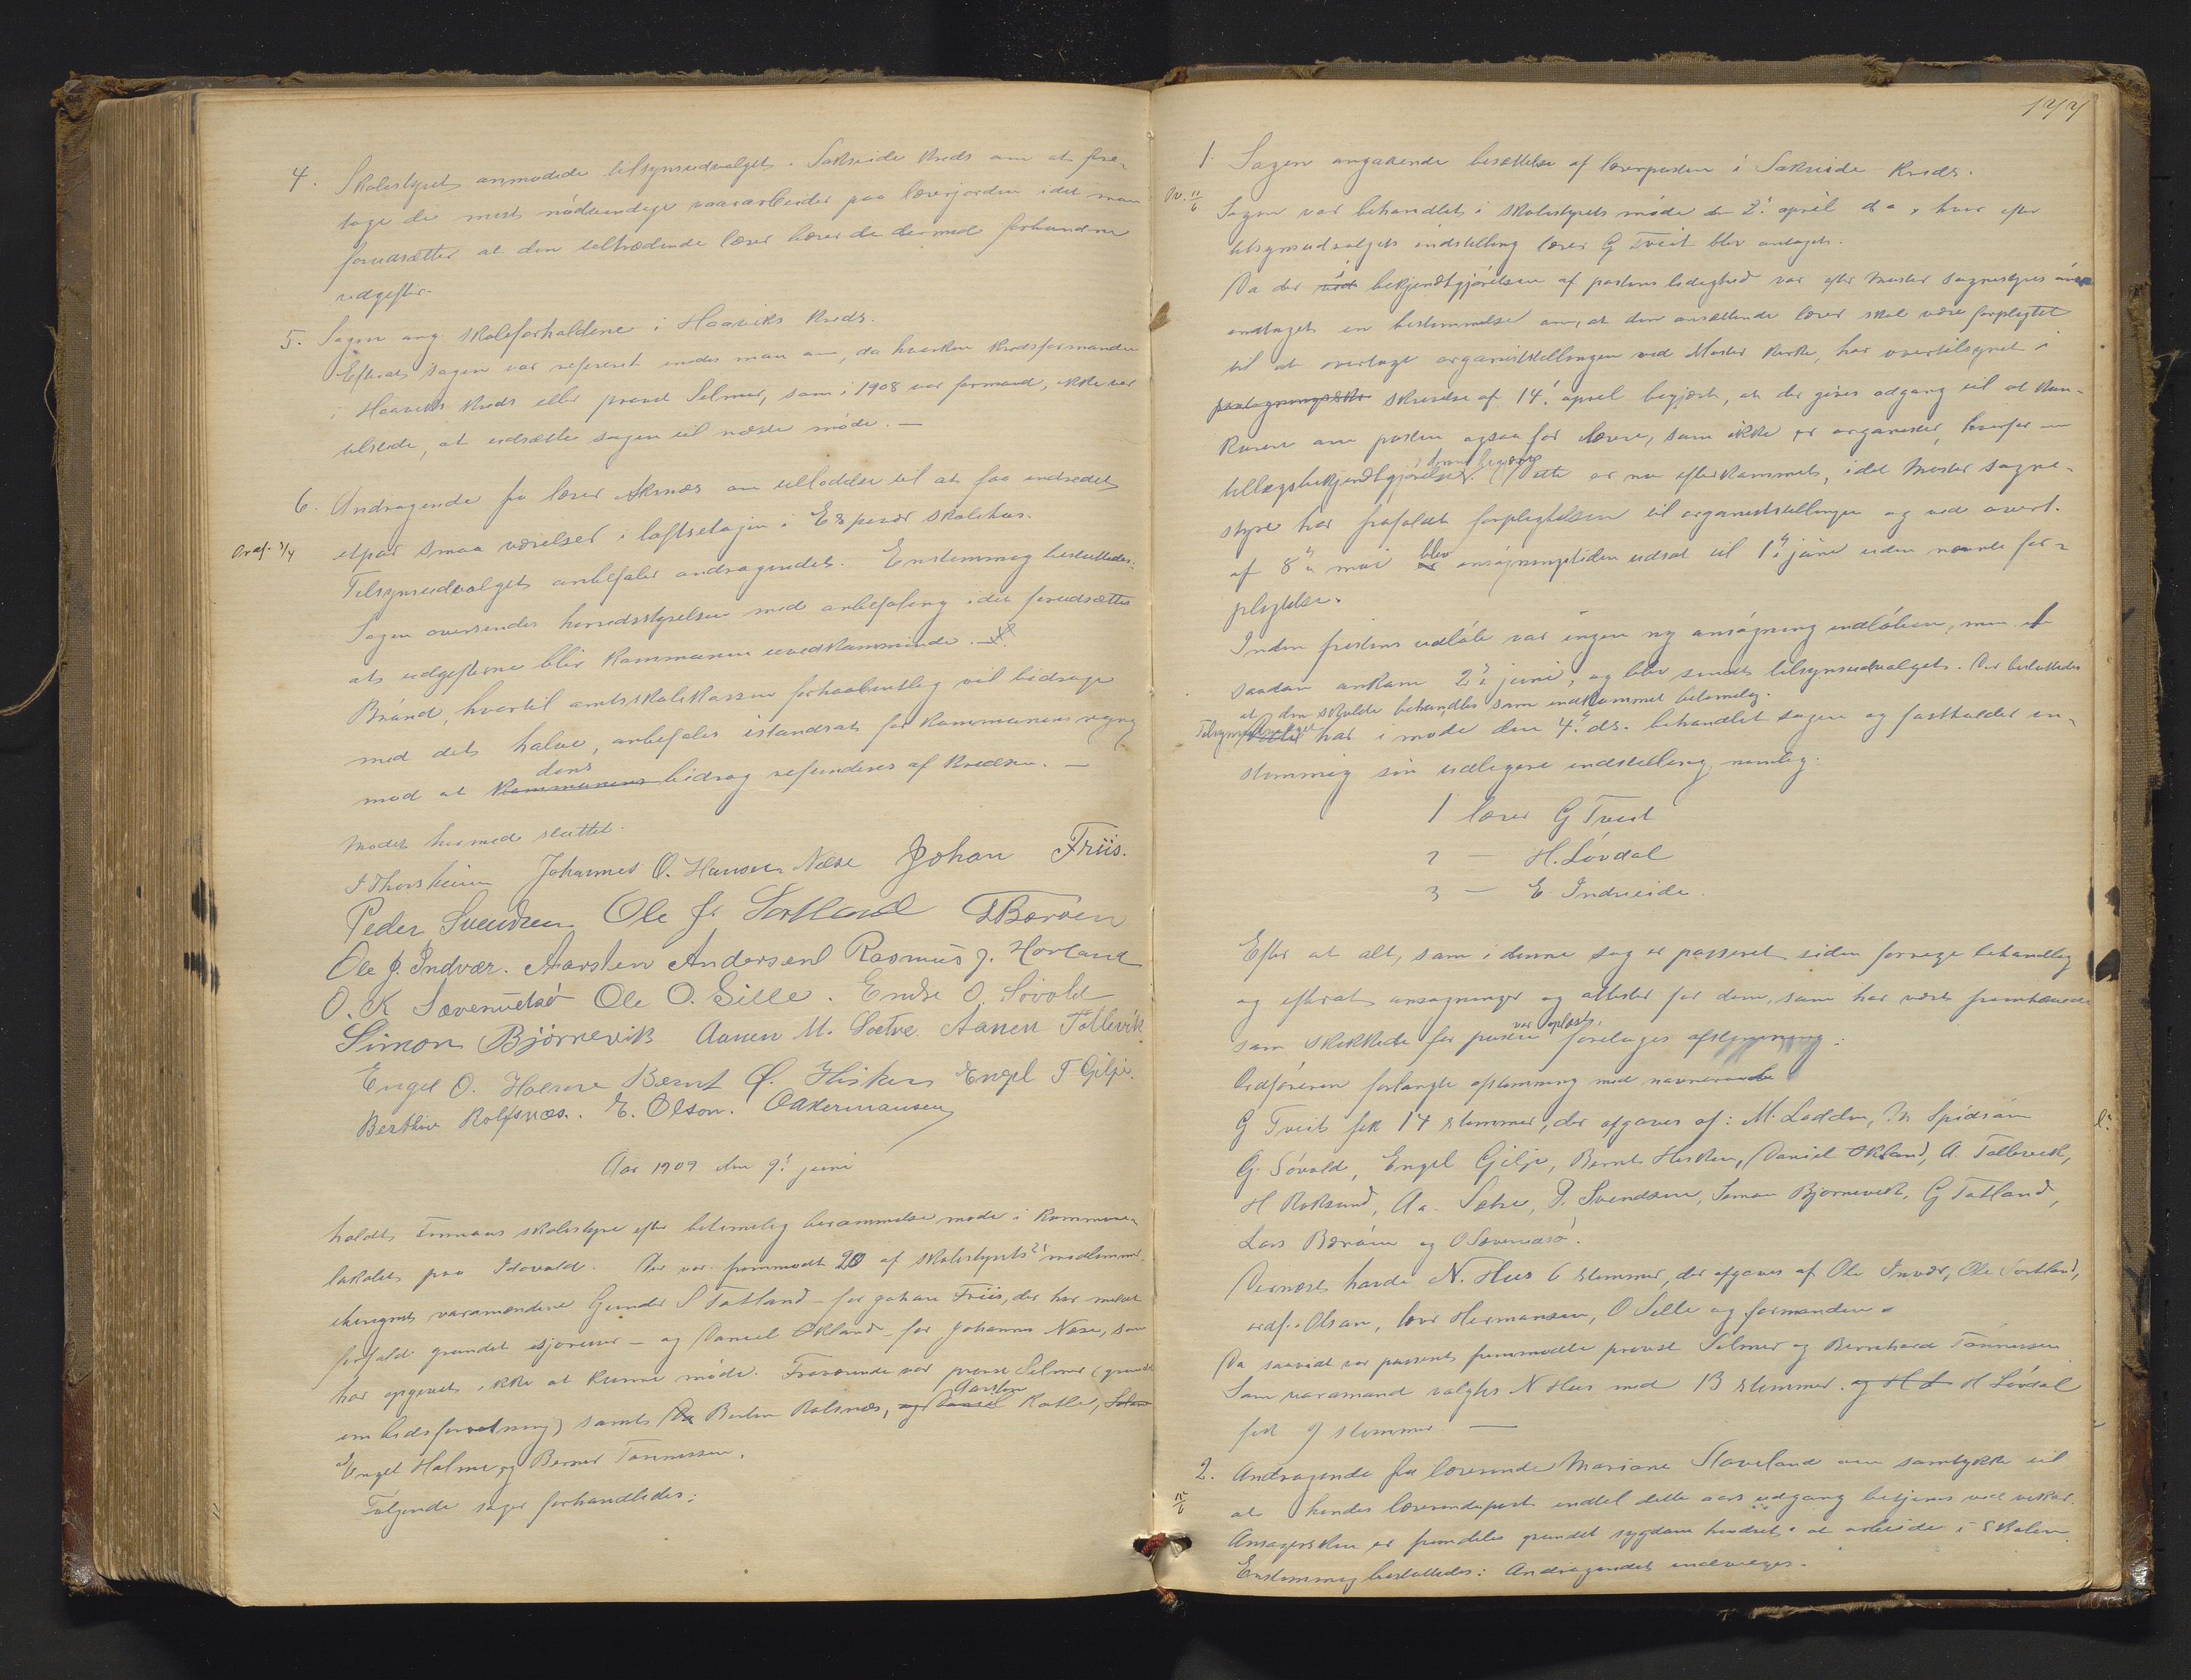 4. Skolestyret anmodede tilsynsudvalget i Sakseide kreds om at fore-
tage de mest nødvendige vaararbeider paa lærerjorden idet man
forudsætter at den tiltrædende lærer bærer de dermed forbundne
udgifter.
5. Sagen ang. skoleforholdene i Haaviks kreds.
Efterat sagen var refereret enedes man om, da hverken kredsformanden
i Haaviks kreds eller provst Selmer, som i 1908 var formand, ikke var
tilstede, at udsætte sagen til næste møde. —
6. Andragende fra lærer Aknæs om tilladelse til at faa indredet
etpar smaa værelser i loftsetagen i Espevær skolehus.
Tilsynsudvalget anbefaler andragendet. Enstemmig besluttedes:
Sagen oversendes herredsstyrelsen med anbefaling idet forudsættes
at udgifterne blir kommunen uvedkommende. —
Brønd, hvortil amtsskolekassen forhaabentlig vil bidrage
med det halve, anbefales istandsat for kommunens regning
dens
mod at kommunens bidrag refunderes af kredsen. —
Mødet hermed sluttet.
J Thorsheim Johannes O. Hanson Næse Johan Friis.
Peder Svendsen Ole J. Sortland LBærøen
Ole J. Indvær. Aarsten Andersen Rasmus J. Hovland
O. K Sævereidsø Ole O. Sille. Endre O. Sövold
Simon Björnevik Aanen M. Sætre Aanen Tollevik
Engel O. Holme Bernt Ø. Hisken Engel T Gilje.
Berthin Rolfsnæs. E. Olson. O Hermansen
Aar 1909 den 9. juni
holdt Finnaas skolestyre efter betimelig berammelse møde i kommune-
lokalet paa Idsvold. Der var fremmødt 20 af skolestyrets medlemmer
iberegnet varamændene Gunder S Totland – for Johan Friis, der har meldt
forfald grundet – og Daniel Økland – for Johannes Næse, som
har opgivet ikke at kunne møde. Fraværende var provst Selmer (grundet
Aarsten
embedsforretning) samt Berthin Rolsnæs, og Daniel Katle,
Engel Holme og Berner Tønnessen.
Følgende sager forhandledes:
177
1. Sagen angaaende besættelse af lærerposten i Sakseide kreds.
Sagen var behandlet i skolestyrets møde den 2. april d a, hvor efter
tilsynsudvalgets indstilling lærer G Tveit blev antaget.
Da der i bekjendtgjørelsen af postens ledighed var efter Moster sognestyres ønske
indtaget en bestemmelse om, at den ansættende lærer skal være forpligtet
til at overtage organiststillingen ved Moster kirke, har overtilsynet i
skrivelse af 14. april begjært, at der gives adgang til at kon-
kurere om posten ogsaa for lærere, som ikke er organister, hvorfor en
tillægsbekjendtgjørelse. Dette er nu efterkommet, idet Moster sogne-
styre har frafaldt forpligtelsen til organiststillingen og ved avert.
af 8. mai blev ansøgningstiden udsat til 1. juni uden nævnte for-
pligtelse.
Inden fristens udløb var ingen ny ansøgning indløben, men en
saadan ankom 2. juni, og blev sendt tilsynsudvalget. Der besluttedes
at den skulde behandles som indkommet betimelig.
Tilsynsudvalget har i møde den 4. ds. behandlet sagen og fastholdet en-
stemmig sin tidligere indstilling nemlig:
1 lærer G Tveit
2 — H. Løvdal
3 — E Indreeide.
Efter at alt, som i denne sag er passeret siden forrige behandling
og efterat ansøgninger og attester for dem, som har været fremhævede
var oplæst,
som skikkede for posten foretoges afstemning:
Ordføreren forlangte afstemning med navneraab
G Tveit fik 14 stemmer, der afgaves af: M. Lodden, M Spidsøen
G. Søvold, Engel Gilje, Bernt Hisken, Daniel Økland, A Tollevik,
H Roksund, Aa. Sætre, P. Svendsen, Simon Bjørnevik, G Totland,
Lars Bærøen og O Sævereidsø.
Dernæst havde N. Hus 6 stemmer, der afgaves af Ole Indvær, Ole Sortland,
ordf. Olson, lærer Hermansen, O Sille og formanden.
Da saavidt var passeret fremmødte provst Selmer og Bernhard Tønnessen
Som varamand valgtes N Hus med 13 stemmer. og H L H Løvdal
fik 9 stemmer. —
2. Andragende fra lærerinde Mariane Staveland om samtykke til
at hendes lærerindepost indtil dette aars udgang betjenes ved vikar.
Ansøgersken er fremdeles grundet sygdom hindret i at arbeide i skolen.
Enstemmig besluttedes: Andragendet indvilges.